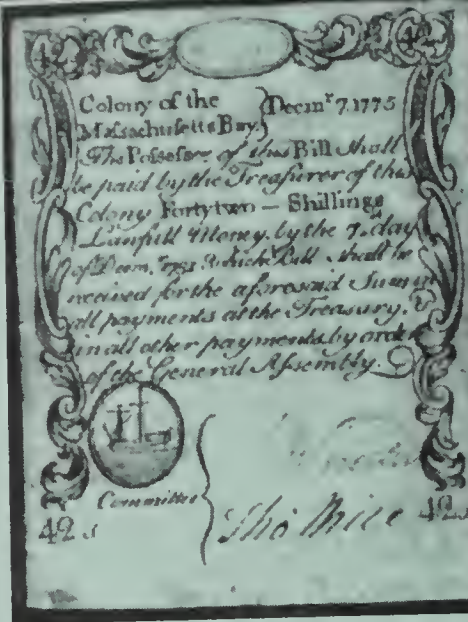 42 42
Colony of the } Decmr. 7. 1775
Massachusetts Bay.
The Possessor of this Bill shall
be paid by the Treasurer of this
Colony Fortytwo — Shillings
Lawfull Money, by the 7. day
of Decm.r 1781 which Bill shall be
received for the aforesaid Sum in
all payments at the Treasury.
in all other payments by order
of the General Assembly.
Committee
42 s Tho 42 s